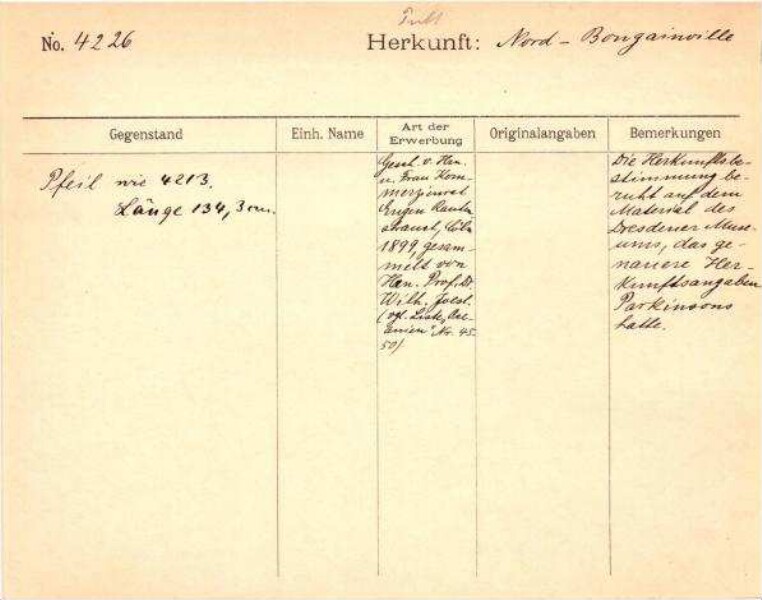 No. 4226
Herkunft: Nord - Bougainville
Gegenstand
Einh. Name
Art der Erwerbung
Originalangaben
Bemerkungen
Pfeil wie 4213.
Länge 134,3 cm.
Gesch. v. Hrn.
u. Frau Kom-
merzienrat
Eugen Rauten
strauch, Cöln
1899, gesam-
melt von
Hrn. Prof. Dr.
Wilh. Joest.
(vgl. Liste „Oce-
anien" Nr. 45-
50).
Die Herkunftsbe-
stimmung be-
ruht auf dem
Material des
Dresdener Muse-
ums, das ge-
nauere Her-
kunftsangaben
Parkinsons
hatte.